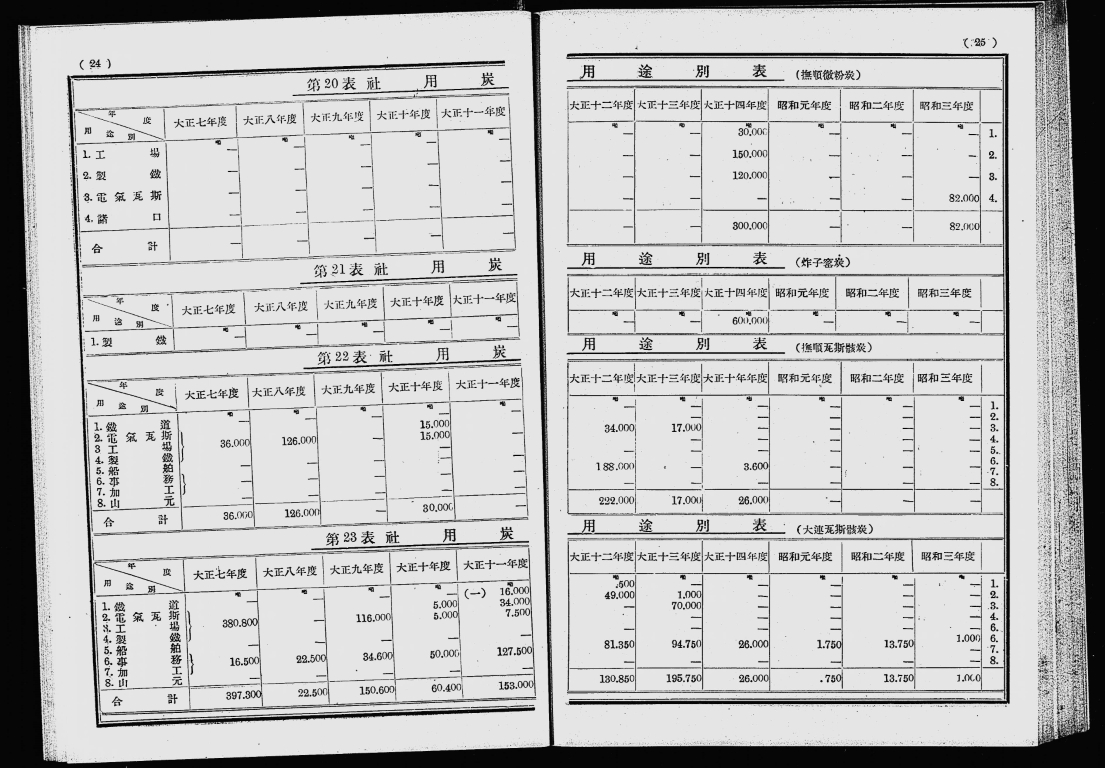 ( 24 )
第20表 社 用 炭
年 度
用 途 別
大正七年度 大正八年度 大正九年度 大正十年度 大正十一年度
1. 工 場 — — — — —
2. 製 鐵 — — — — —
3. 電 氣 瓦 斯 — — — — —
4. 諸 口 — — — — —
合 計 — — — — —
第21表 社 用 炭
年 度
用 途 別
大正七年度 大正八年度 大正九年度 大正十年度 大正十一年度
1. 製 鐵 — — — — —
第22表 社 用 炭
年 度
用 途 別
大正七年度 大正八年度 大正九年度 大正十年度 大正十一年度
1. 鐵 道 — — — 15.000 —
2. 電 氣 瓦 斯 15.000
3 工 場 36.000 126.000 — — —
4. 製 鐵
5. 船 舶
6. 事 務
7. 加 工
8. 山 元
合 計 36.000 126.000 — 30.000 —
第23表 社 用 炭
年 度
用 途 別
大正七年度 大正八年度 大正九年度 大正十年度 大正十一年度
1. 鐵 道 — — — — (一) 16.000
2. 電 氣 瓦 斯 5.000 34.000
3. 工 場 380.800 — 116.000 5.000 7.500
4. 製 鐵
5. 船 舶
6. 事 務 16.500 22.500 34.600 50.000 127.500
7. 加 工
8. 山 元
合 計 397.300 22.500 150.600 60.400 153.000
( 25 )
用 途 別 表 (撫順微粉炭)
大正十二年度 大正十三年度 大正十四年度 昭和元年度 昭和二年度 昭和三年度
— — 30.000 — — — 1.
— — 150.000 — — — 2.
— — 120.000 — — — 3.
— — — — — 82.000 4.
— — 300.000 — — 82.000
用 途 別 表 (炸子窰炭)
大正十二年度 大正十三年度 大正十四年度 昭和元年度 昭和二年度 昭和三年度
— — 600.000 — — —
用 途 別 表 (撫順瓦斯骸炭)
大正十二年度 大正十三年度 大正十年年度 昭和元年度 昭和二年度 昭和三年度
— — — — — — 1.
— — — 2.
34.000 17.000 — — — — 3.
— — — — — — 4.
— — — — — — 5.
188.000 — 3.600 — — — 6.
7.
— — — — — — 8.
222.000 17.000 26.000 — — —
用 途 別 表 (大連瓦斯骸炭)
大正十二年度 大正十三年度 大正十四年度 昭和元年度 昭和二年度 昭和三年度
.500 — — — — — 1.
49.000 1.000 — — — — 2.
— 70.000 — — — — 3.
— — — — — — 4.
— — — — — — 6.
81.350 94.750 26.000 1.750 13.750 1.000 6.
7.
— — — — — — 8.
130.850 195.750 26.000 .750 13.750 1.000